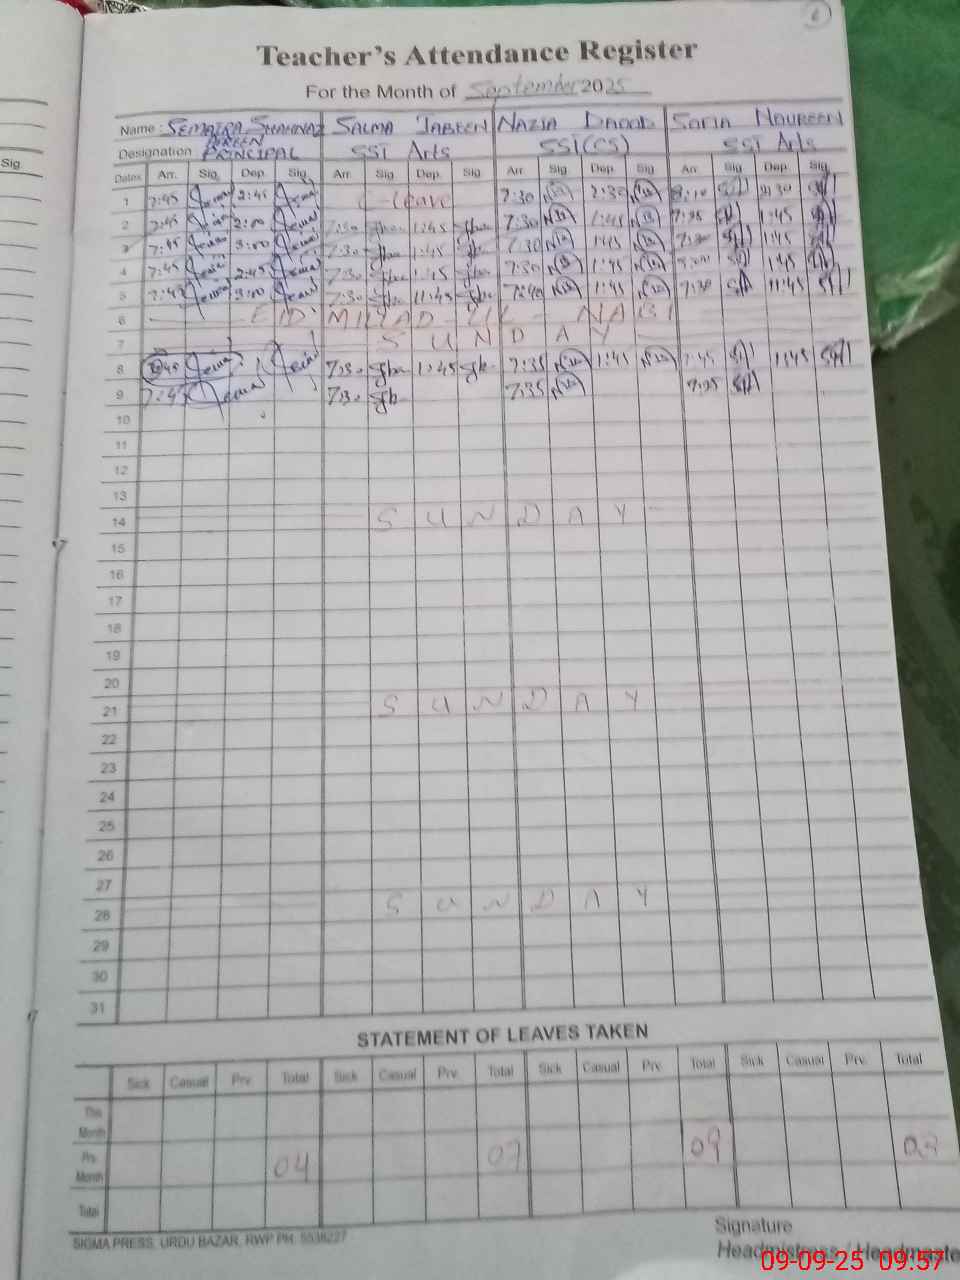 Teacher's Attendance Register
For the Month of September 2025
Name : SEMAIRA SHAHNAZ SALMA JABEEN NAZIA DAOOD SOFIA NOUREEN
Designation PRINCIPAL SST Arts SST(CS) SST Arts
Sig
Dates Arr. Sig. Dep. Sig. Arr. Sig Dep. Sig Arr. Sig Dep. Sig Arr. Sig Dep. Sig
1 7:45 2:45 C-leave 7:30 2:30 8:10 2:30
2 7:45 2:00 7:30 1:45 7:30 1:45 7:35 1:45
3 7:45 3:00 7:30 1:45 7:30 1:45 1:45
4 7:45 2:45 7:30 1:45 7:30 1:45 1:45
5 7:45 3:00 7:30 11:45 7:40 1:45 7:30 11:45
6 EID MILLAD-UL-NABI
7 SUNDAY
8 7:30 1:45 7:35 1:45 7:45 1:45
9 7:45 7:30 7:35 7:35
10
11
12
13
14 SUNDAY
15
16
17
18
19
20
21 SUNDAY
22
23
24
25
26
27
28 SUNDAY
29
30
31
STATEMENT OF LEAVES TAKEN
Sick Casual Prv. Total Sick Casual Prv. Total Sick Casual Prv. Total Sick Casual Prv. Total
This Month
Prv. Month 04 07 09
Total
SIGMA PRESS, URDU BAZAR, RWP PH: 5538227
Signature
Headmistress / Headmaste
09-09-25 09:57